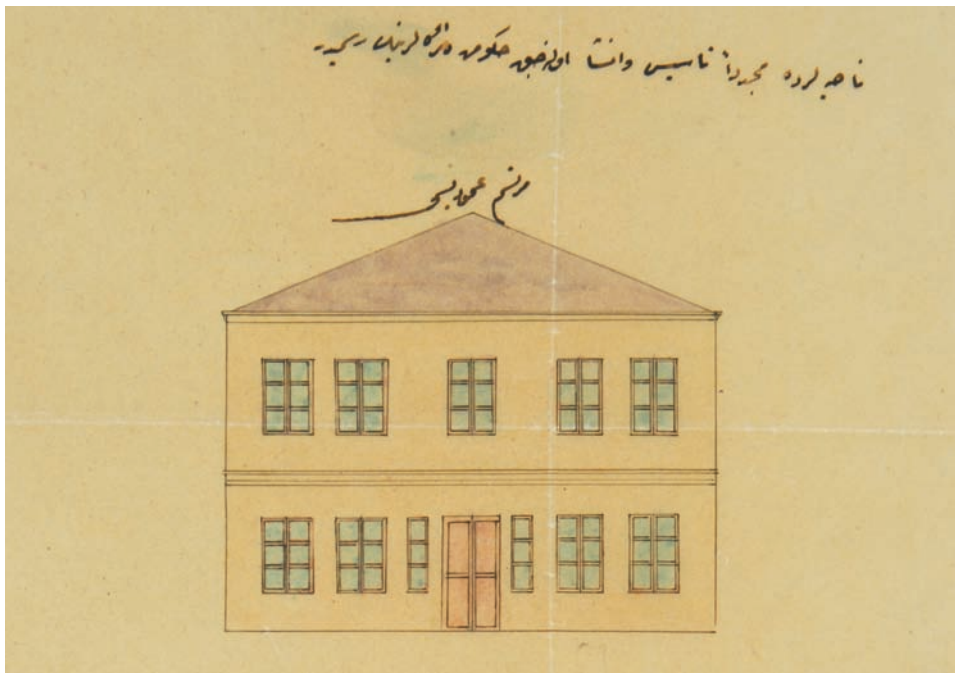 ناحیه لرده مجدداً تأسیس وانشا اوله‌جق حکومت دائره‌لرینك رسمیدر
مرتسم عمودیسی